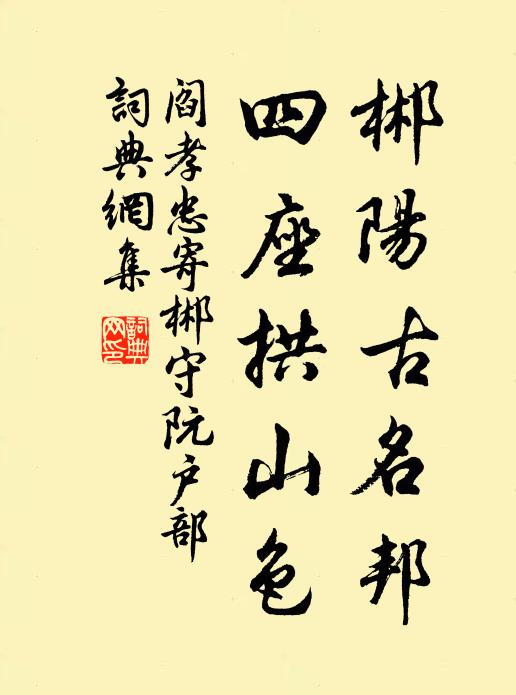 郴陽古名邦
四座拱山色
閻孝忠寄郴守阮户部
詞典網集
詞典网印